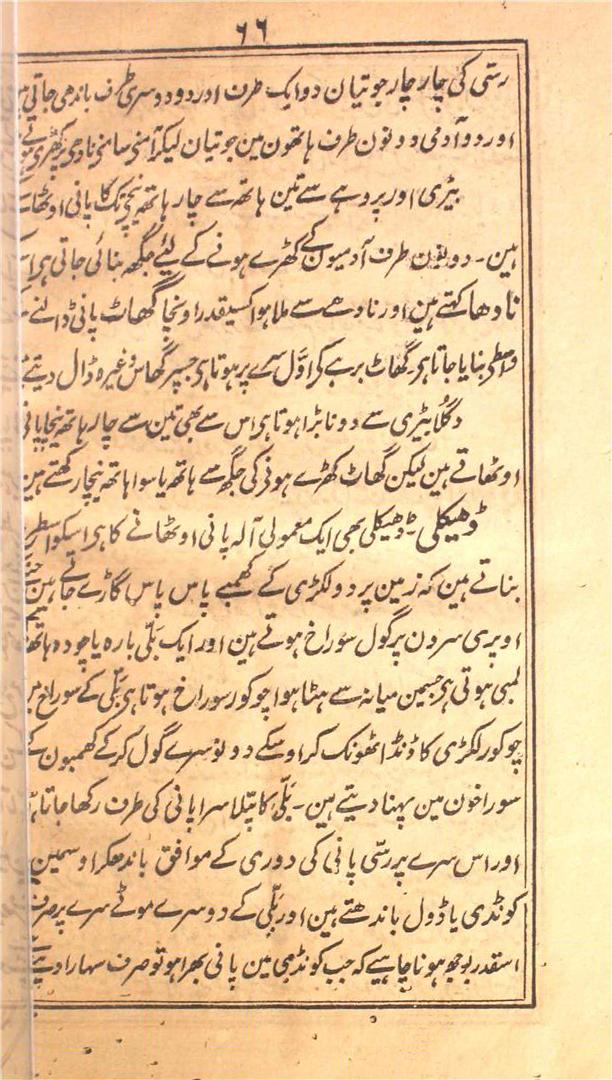 ۶۶
رسّی کی چار چار جوتیان دو ایک طرف اور دو دوسری طرف باندھی جاتی ہین
اور دو آدمی دونون طرف ہاتھون مین جوتیان لیکر آمنی سامنی نادی پر کھڑی
بیڑی اور پروہے سے تین ہاتھ سے چار ہاتھ نیچی تک کا پانی اوٹھا
ہین۔ دونون طرف آدمیون کے کھڑے ہونے کے لیئے جگھ بنائی جاتی ہر اس
نادھا کہتے ہین اور نادھے سے ملا ہوا کسیقدر اونچا گھاٹ پانی ڈالنے
واسطی بنایا جاتا ہر۔ گھاٹ برہے کر اوّل سرے پر ہوتا ہر جسپر گھاس وغیرہ ڈال دیتے
دگلا بیڑی سے دونا بڑا ہوتا ہر اس سے بھی تین سے چار ہاتھ نیچا پانی
اوٹھاتے ہین لیکن گھاٹ کھڑے ہونیکی جگھ سے ہاتھ یا سوا ہاتھ نیچا رکھتے ہین
ڈھیکلی۔ ڈھیکلی بھی ایک معمولی آلہ پانی اوٹھانے کا ہر اسکو اسطرح
بناتے ہین کہ زمین پر دو لکڑی کے کھمبے پاس پاس گاڑے جاتے ہین جنکے
اوپری سرون پر گول سوراخ ہوتے ہین اور ایک بلّی بارہ یا چودہ ہاتھ
لمبی ہوتی ہر جسمین میانہ سے ہٹا ہوا چوکور سوراخ ہوتا ہر بلّی کے سوراخ مین
چوکور لکڑی کا ڈنڈا ٹھونک کر اوسکے دونو سرے گول کرکے کھمبون کے
سوراخون مین پہنا دیتے ہین۔ بلّی کا پتلا سرا پانی کی طرف رکھا جاتا ہر
اور اس سرے پر رسّی پانی کی دوری کے موافق باندھکر اوسمین
کونڈی یا ڈول باندھتے ہین اور بلّی کے دوسرے موٹے سرے پر صرف
استقدر بوجھ ہونا چاہیے کہ جب کونڈھی مین پانی بھرا ہو تو صرف سہارا دینے